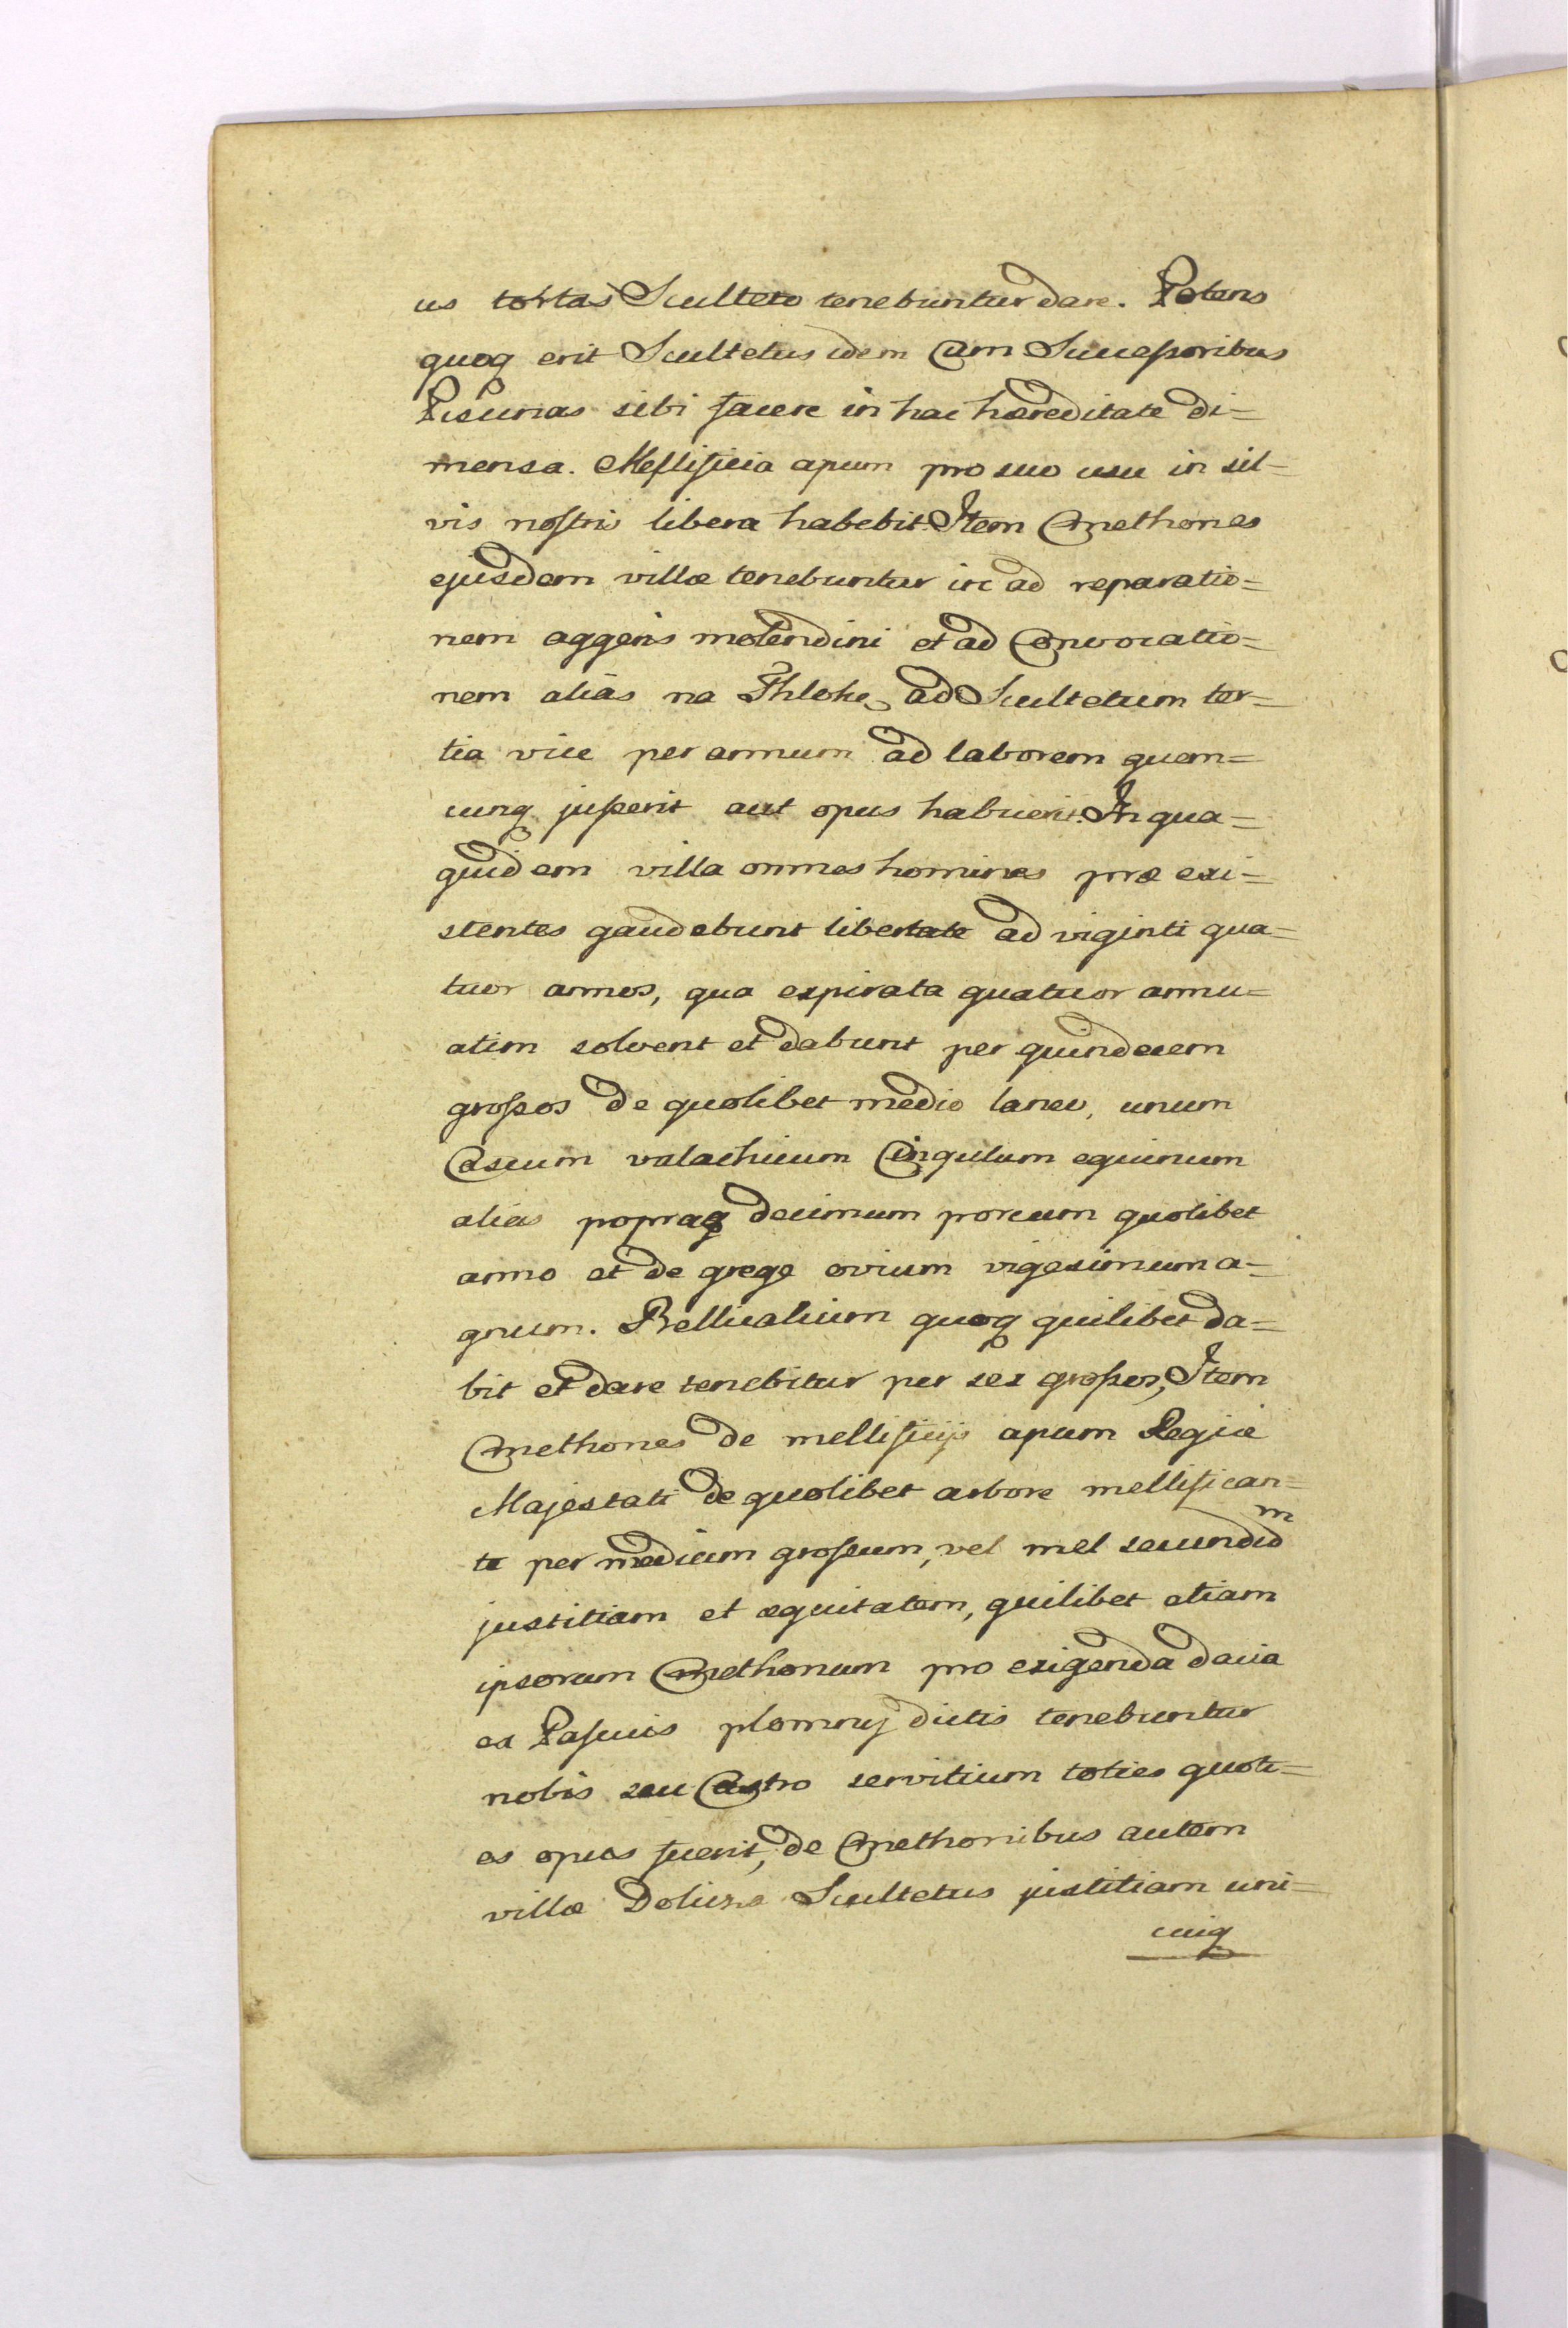 us tortas Sculteto tenebuntur dare. Potens
quoq erit Scultetus idem Cum Successoribus
Piscinas sibi facere in hac hæreditate di=
mensa. Mellificia apum pro suo usu in sil=
vis nostris libera habebit. Item Cmethones
ejusdem villæ tenebuntur ire ad reparatio=
nem aggeris molendini et ad Convocatio=
nem alias na Thloke, ad Scultetum ter=
tia vice per annum ad laborem quem=
cunq jusserit aut opus habuerit. In qua=
quidem villa omnes homines præ exi=
stentes gaudebunt libertate ad viginti qua=
tuor annos, qua expirata quatuor annu=
atim solvent et dabunt per quindecem
grossos de quolibet medio laneo, unum
Caseum valachicum Cingulum equinum
alias poprag decimum porcum quolibet
anno et de grege ovium vigesimum a=
gnum. Bellicalium quoq quilibet da=
bit et dare tenebitur per sex grossos, Item
Cmethones de mellificijs apum Regiæ
Majestati de quolibet arbore mellifican=
te per medium grossum, vel mel secundu͞m
justitiam et æquitatem, quilibet etiam
ipsorum Cmethonum pro exigenda dacia
ex Pascuis plomny dictis tenebuntur
nobis seu Castro servitium toties quoti=
es opus fuerit, de Cmethonibus autem
villæ Scultetus justitiam uni=
cuiq